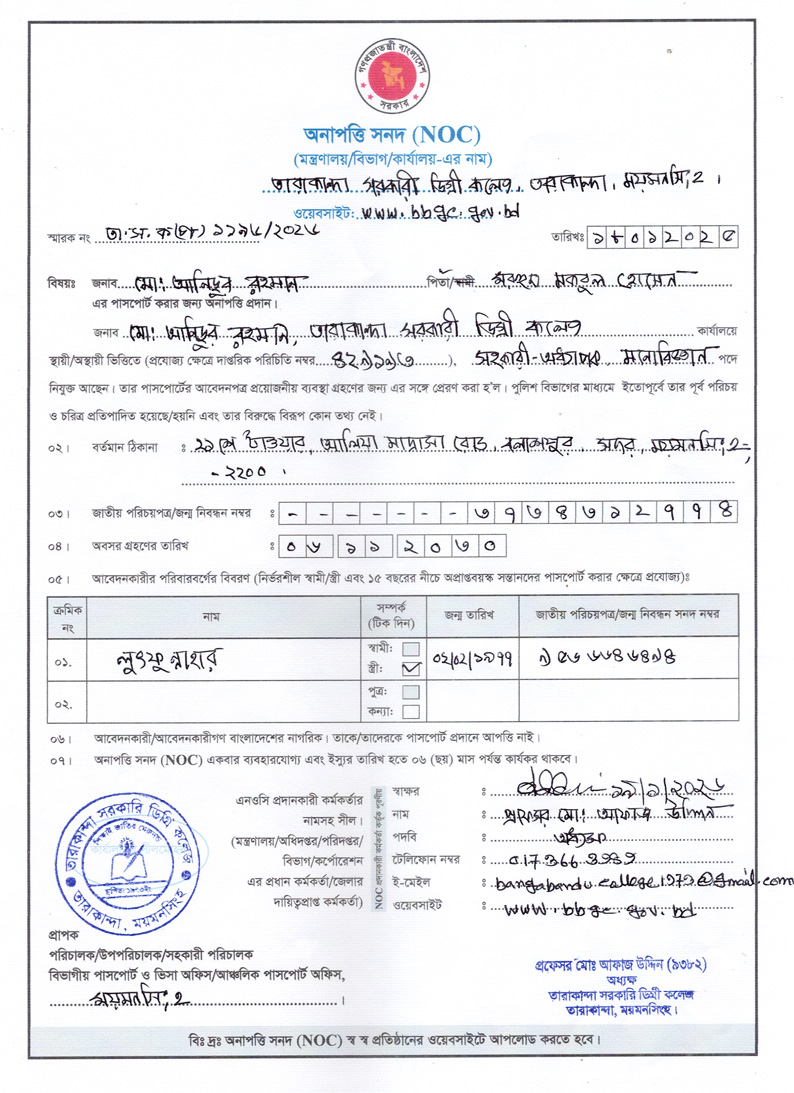 গণপ্রজাতন্ত্রী বাংলাদেশ
সরকার
অনাপত্তি সনদ (NOC)
(মন্ত্রণালয়/বিভাগ/কার্যালয়-এর নাম)
তারাকান্দা সরকারী ডিগ্রী কলেজ, তারাকান্দা, ময়মনসিংহ।
ওয়েবসাইট: www.bbgc.gov.bd
স্মারক নং তা.স.ক
তারিখঃ
বিষয়ঃ জনাব মো: আনিছুর রহমান পিতা/স্বামী মরহুম মকবুল হোসেন
এর পাসপোর্ট করার জন্য অনাপত্তি প্রদান।
জনাব মো: আনিছুর রহমান, তারাকান্দা সরকারী ডিগ্রী কলেজ কার্যালয়ে
স্থায়ী/অস্থায়ী ভিত্তিতে (প্রযোজ্য ক্ষেত্রে দাপ্তরিক পরিচিতি নম্বর), সহকারী-অধ্যাপক মনোবিজ্ঞান পদে
নিযুক্ত আছেন। তার পাসপোর্টের আবেদনপত্র প্রয়োজনীয় ব্যবস্থা গ্রহণের জন্য এর সঙ্গে প্রেরণ করা হ'ল। পুলিশ বিভাগের মাধ্যমে ইতোপূর্বে তার পূর্ব পরিচয়
ও চরিত্র প্রতিপাদিত হয়েছে/হয়নি এবং তার বিরুদ্ধে বিরূপ কোন তথ্য নেই।
০২। বর্তমান ঠিকানা : টাওয়ার, আলিয়া মাদ্রাসা রোড, সদর, ময়মনসিংহ-
- ২২০০
০৩। জাতীয় পরিচয়পত্র/জন্ম নিবন্ধন নম্বর ঃ - - - - - - - ৩৭৩৪৭১২৭৭৪
০৪। অবসর গ্রহণের তারিখ ঃ ০৬১১২০৩০
০৫। আবেদনকারীর পরিবারবর্গের বিবরণ (নির্ভরশীল স্বামী/স্ত্রী এবং ১৫ বছরের নীচে অপ্রাপ্তবয়স্ক সন্তানদের পাসপোর্ট করার ক্ষেত্রে প্রযোজ্য)ঃ
ক্রমিক নং নাম সম্পর্ক (টিক দিন) জন্ম তারিখ জাতীয় পরিচয়পত্র/জন্ম নিবন্ধন সনদ নম্বর
০১. লুৎফুন্নাহার স্বামী: স্ত্রী: ✓ ০২/০২/১৯৭৭
০২. পুত্র: কন্যা:
০৬। আবেদনকারী/আবেদনকারীগণ বাংলাদেশের নাগরিক। তাকে/তাদেরকে পাসপোর্ট প্রদানে আপত্তি নাই।
০৭। অনাপত্তি সনদ (NOC) একবার ব্যবহারযোগ্য এবং ইস্যুর তারিখ হতে ০৬ (ছয়) মাস পর্যন্ত কার্যকর থাকবে।
এনওসি প্রদানকারী কর্মকর্তার
নামসহ সীল।
(মন্ত্রণালয়/অধিদপ্তর/পরিদপ্তর/
বিভাগ/কর্পোরেশন
এর প্রধান কর্মকর্তা/জেলার
দায়িত্বপ্রাপ্ত কর্মকর্তা)
NOC প্রদানকারী কর্মকর্তা কর্তৃক পূরণীয়
স্বাক্ষর :
নাম : প্রফেসর মো: আফাজ উদ্দিন
পদবি : অধ্যক্ষ
টেলিফোন নম্বর :
ই-মেইল : bangabandu.college1979@gmail.com
ওয়েবসাইট : www.bbgc.gov.bd
তারাকান্দা সরকারি ডিগ্রি কলেজ
তারাকান্দা, ময়মনসিংহ
প্রাপক
পরিচালক/উপপরিচালক/সহকারী পরিচালক
বিভাগীয় পাসপোর্ট ও ভিসা অফিস/আঞ্চলিক পাসপোর্ট অফিস,
ময়মনসিংহ।
প্রফেসর মোঃ আফাজ উদ্দিন (৯৩৮২)
অধ্যক্ষ
তারাকান্দা সরকারি ডিগ্রী কলেজ
তারাকান্দা, ময়মনসিংহ।
বিঃ দ্রঃ অনাপত্তি সনদ (NOC) স্ব স্ব প্রতিষ্ঠানের ওয়েবসাইটে আপলোড করতে হবে।